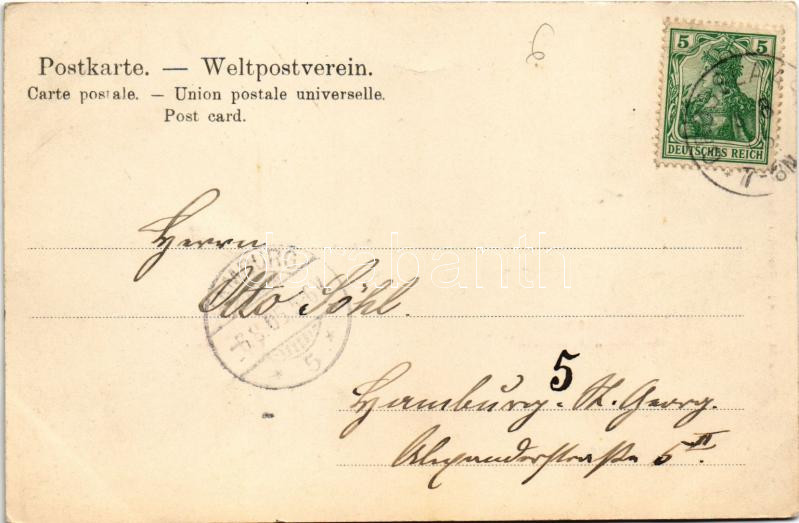 Postkarte. — Weltpostverein.
Carte postale. — Union postale universelle.
Post card.
5 5
DEUTSCHES REICH
7-8N
Herrn
Otto Söhl.
MBURG
6.8.05
* 5 *
5
Hamburg. St. Georg.
Alexanderstraße 5 II.
darabanth